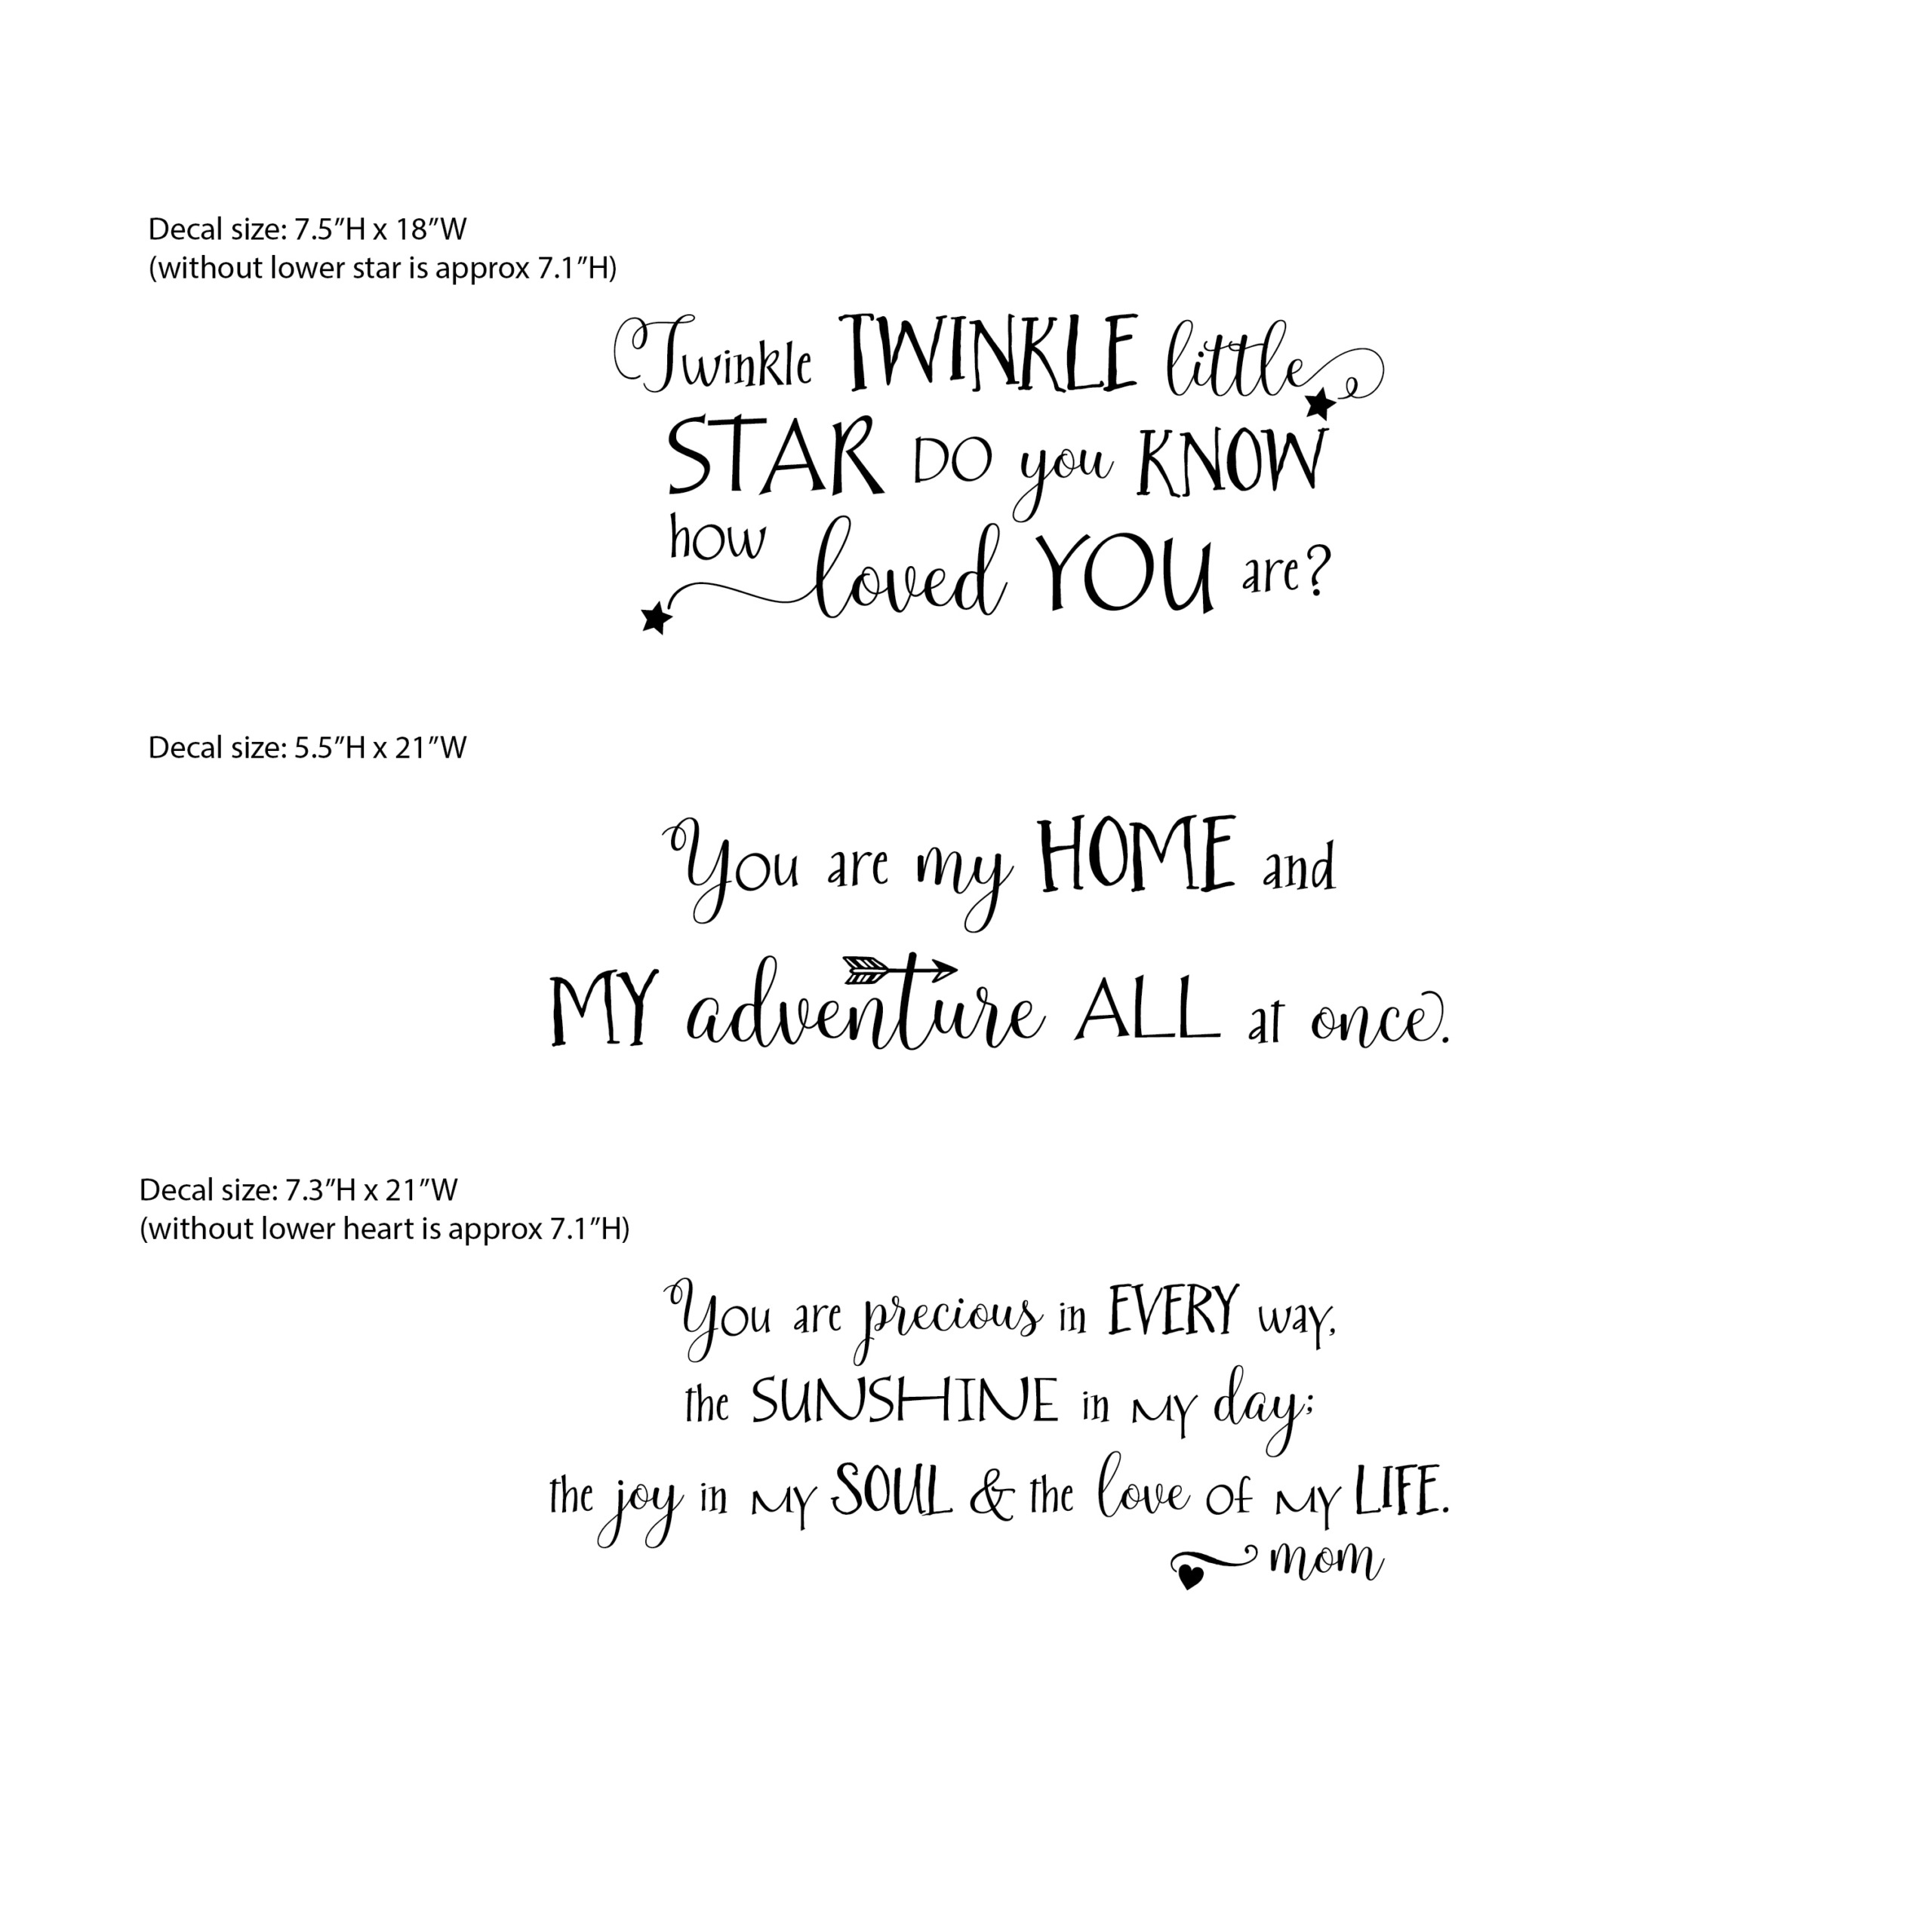 Decal size: 7.5"H x 18"W
(without lower star is approx 7.1"H)
Twinkle TWINKLE little
STAR DO you KNOW
how loved YOU are?
Decal size: 5.5"H x 21"W
You are my HOME and
MY adventure ALL at once.
Decal size: 7.3"H x 21"W
(without lower heart is approx 7.1"H)
You are precious in EVERY way,
the SUNSHINE in MY day;
the joy in MY SOUL & the love of MY LIFE.
mom